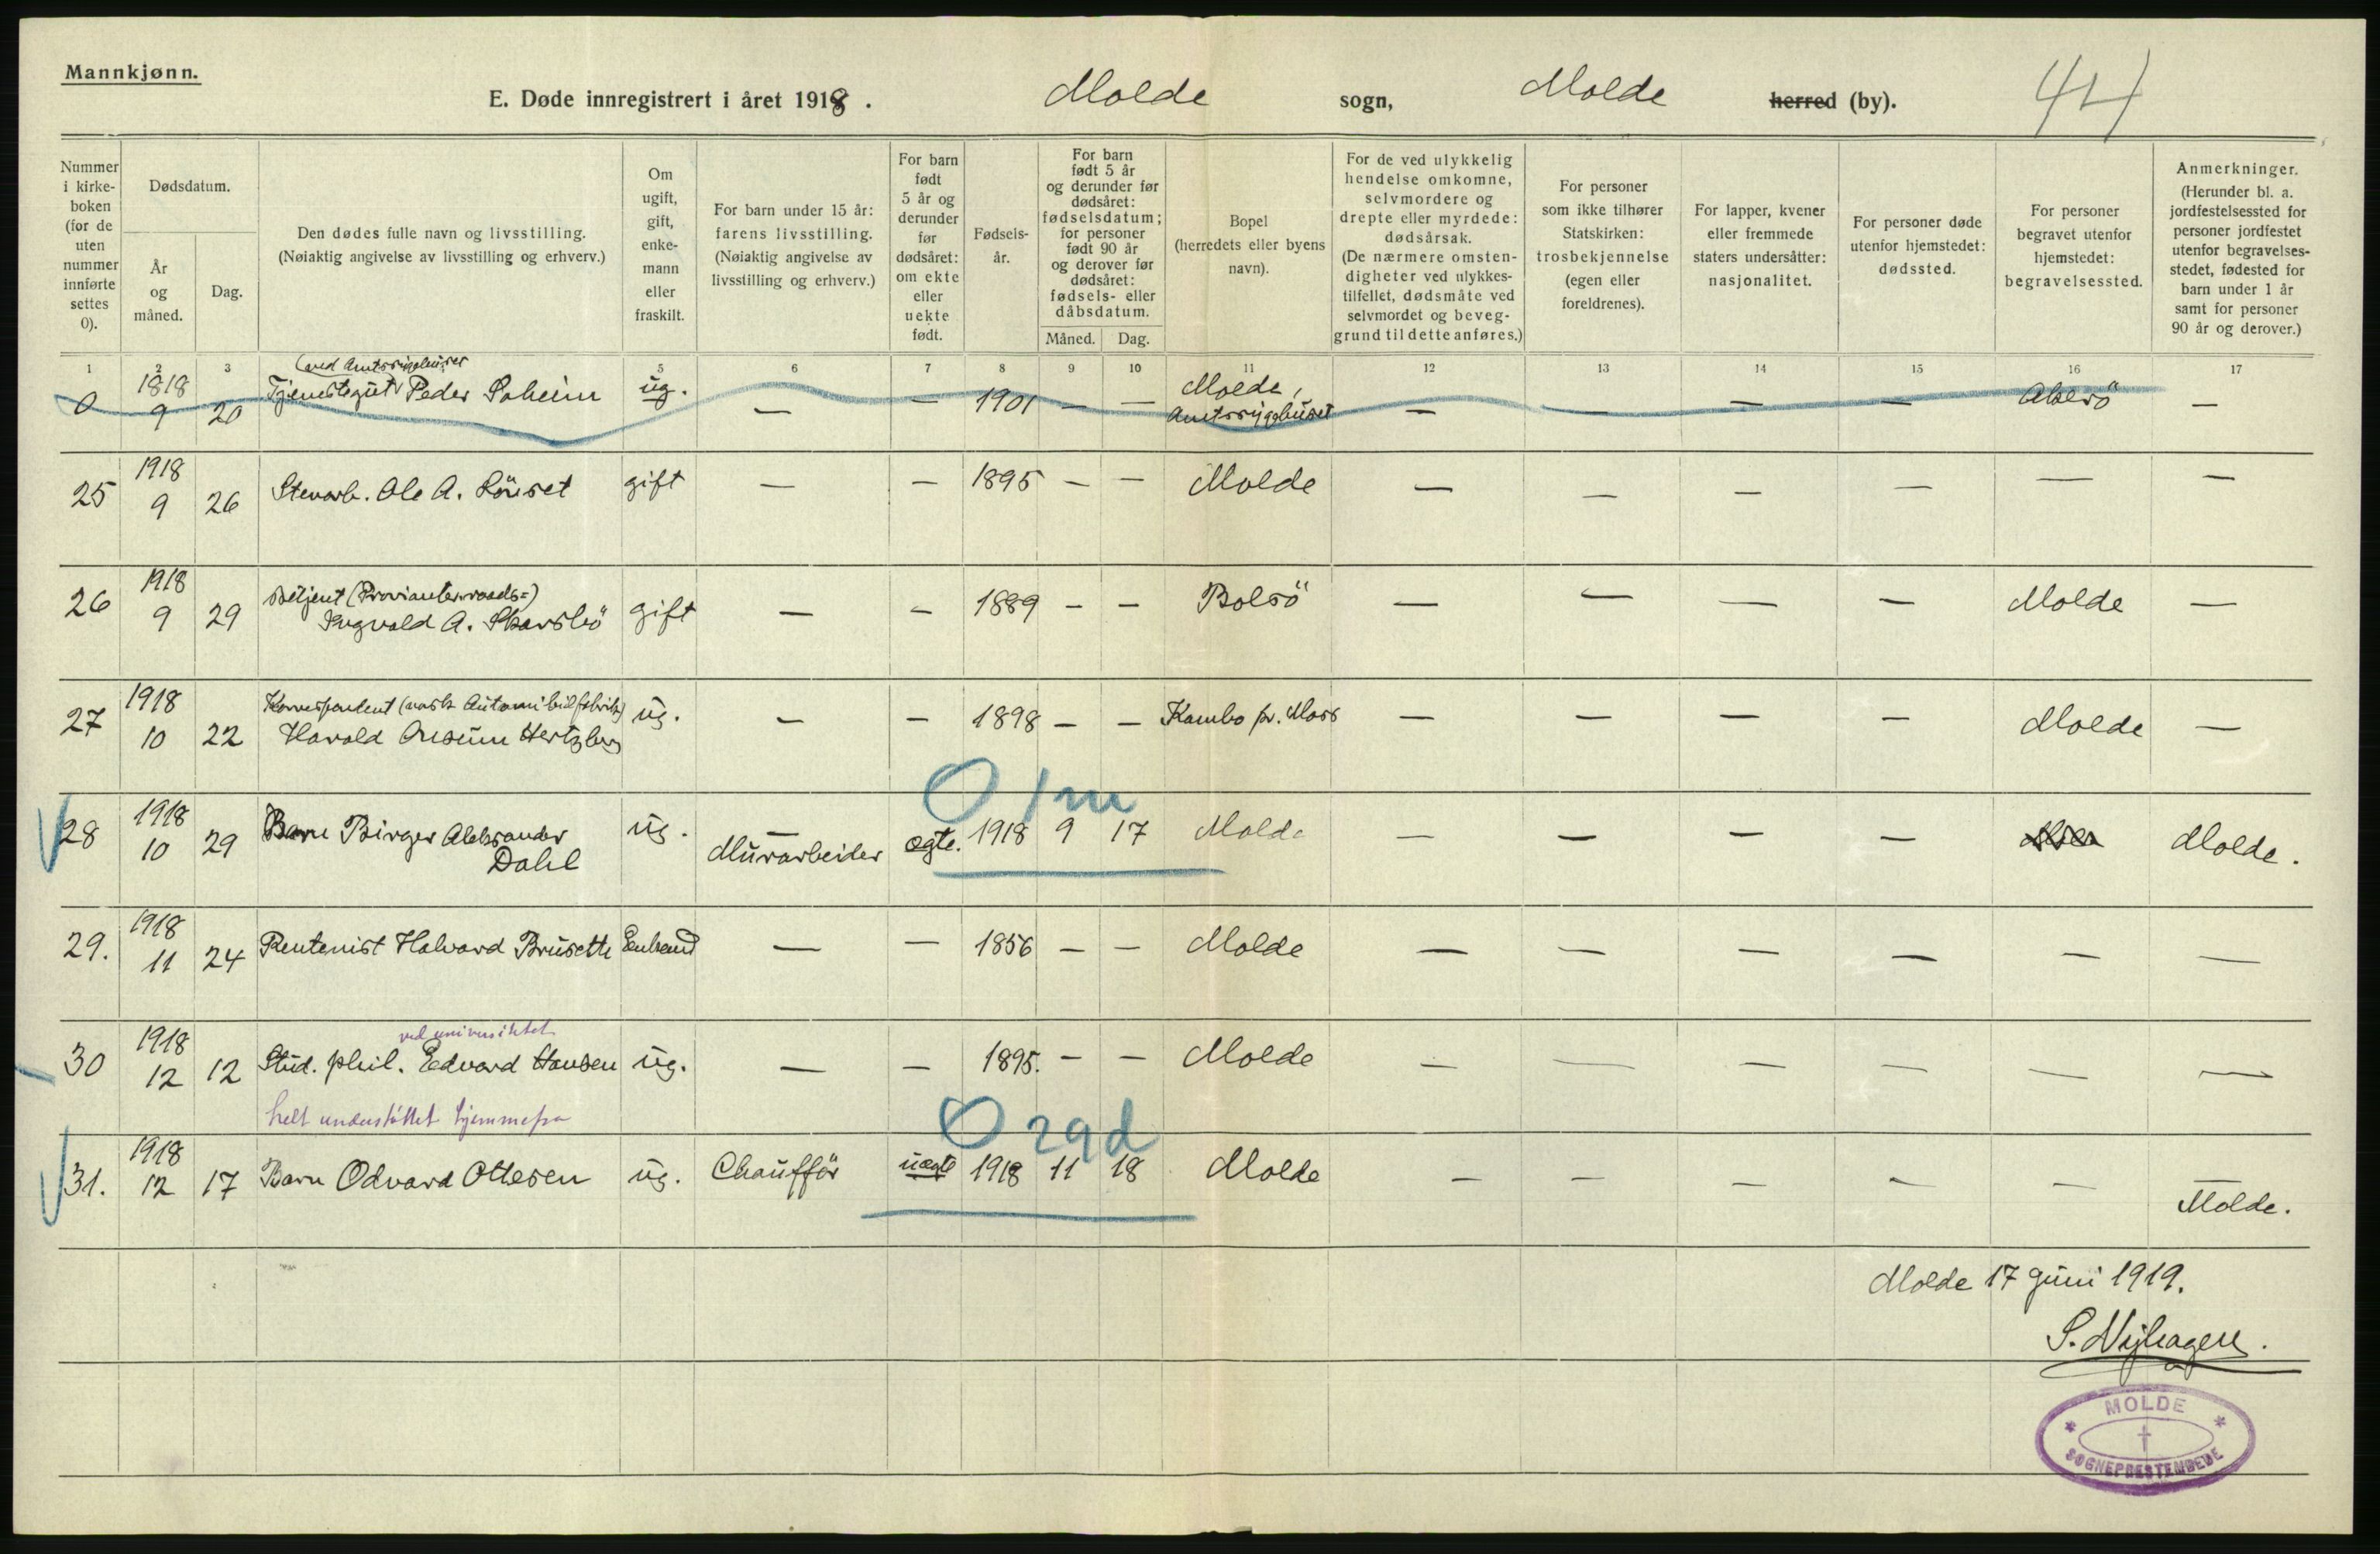 Mannkjønn.
E. Døde innregistrert i året 1918. Molde sogn, Molde herred (by). 44
Nummer i kirke- boken (for de uten nummer innførte settes 0).
Dødsdatum.
År og måned.
Dag.
Den dødes fulle navn og livsstilling.
(Nøiaktig angivelse av livsstilling og erhverv.)
Om ugift, gift, enke- mann eller fraskilt.
For barn under 15 år: farens livsstilling. (Nøiaktig angivelse av livsstilling og erhverv.)
For barn født 5 år og derunder før dødsåret: om ekte eller uekte født.
Fødsels- år.
For barn født 5 år og derunder før dødsåret: fødselsdatum; for personer født 90 år og derover før dødsåret: fødsels- eller dåbsdatum.
Måned. Dag.
Bopel (herredets eller byens navn).
For de ved ulykkelig hendelse omkomne, selvmordere og drepte eller myrdede: dødsårsak. (De nærmere omsten- digheter ved ulykkes- tilfellet, dødsmåte ved selvmordet og beveg- grund til dette anføres.)
For personer som ikke tilhører Statskirken: trosbekjennelse (egen eller foreldrenes).
For lapper, kvener eller fremmede staters undersåtter: nasjonalitet.
For personer døde utenfor hjemstedet: dødssted.
For personer begravet utenfor hjemstedet: begravelsessted.
Anmerkninger. (Herunder bl. a. jordfestelsessted for personer jordfestet utenfor begravelses- stedet, fødested for barn under 1 år samt for personer 90 år og derover.)
1 2 3 5 6 7 8 9 10 11 12 13 14 15 16 17
(ved Amtssygehuset
0 1818 9 20 Tjenestegut Peder Soheim ug. — — 1901 — — Molde, Amtssygehuset — — — — Akerö —
25 1918 9 26 Stenarb. Ole A. Löuset gift — — 1895 — — Molde — — — — — —
26 1918 9 29 Betjent (Provianteraads-)
Ingvald A. Skarsbö gift — — 1889 — — Bolsö — — — — Molde —
27 1918 10 22 Korrespondent (norsk Automobilfabrik)
Harald Onsum Hertzberg ug. — — 1898 — — Kambo pr. Moss — — — — Molde —
0 1m
28 1918 10 29 Barn Birger Aleksander
Dahl ug. — Murarbeider ægte. 1918 9 17 Molde — — — — Molde.
29. 1918 11 24 Rentenist Halvard Brusethh Enkemd — — 1856 — — Molde — — — — — —
ved universitetet
30 1918 12 12 Stud. phil. Edvard Hansen ug. — — 1895. — — Molde — — — — — —
helt understöttet hjemmefra
0 29d
31. 1918 12 17 Barn Odvard Ottesen ug. Chaufför uægte 1918 11 18 Molde — — — — — —
Molde.
Molde 17 juni 1919.
S. Nyhagen.
MOLDE
SOGNEPRESTEMBEDE